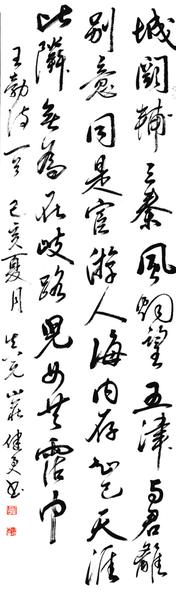 城闕輔三秦風烟望五津与君離
別意同是宦游人海内存知己天涯
比隣無為在歧路兒女共霑巾
王勃诗一首 己亥夏月 山莊 健 书